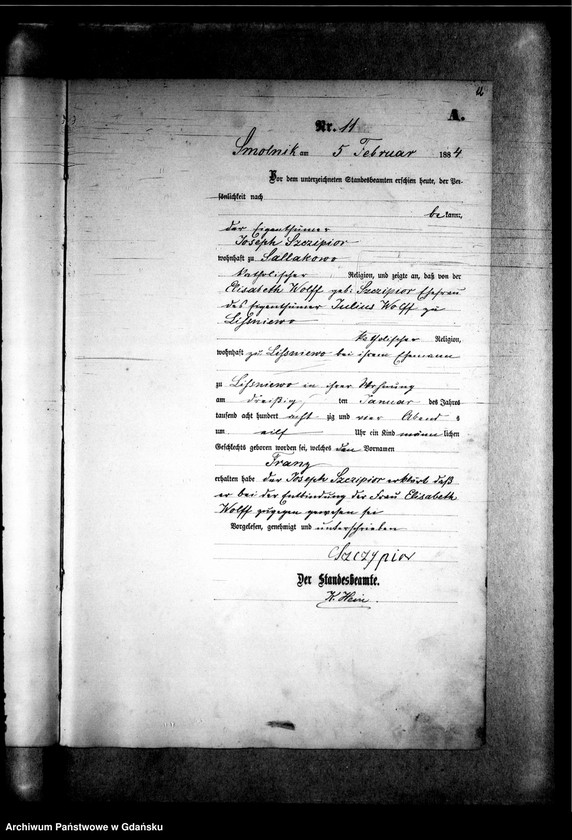 a
A.
Nr. 11
Smolnik am 5 Februar 1884
Vor dem unterzeichneten Standesbeamten erschien heute, der Per-
sönlichkeit nach
bekannt,
der Eigenthümer
Joseph Szczipior
wohnhaft zu Sallakowo
katholischer Religion, und zeigte an, daß von der
Elisabeth Wolff geb: Szczipior Ehefrau
des Eigenthümer Julius Wolff zu
Lissniewo
katholischer Religion,
wohnhaft zu Lissniewo bei ihrem Ehemann
zu Lissniewo in ihrer Wohnung
am dreißig ten Januar des Jahres
tausend acht hundert acht zig und vier Abend s
um eilf Uhr ein Kind männlichen
Geschlechts geboren worden sei, welches den Vornamen
Franz
erhalten habe der Joseph Szczipior erklärt daß
er bei der Entbindung der Frau Elisabeth
Wolff zugegen gewesen sei
Vorgelesen, genehmigt und unterschrieben
Szczypior
Der Standesbeamte.
K. Hein.
Archiwum Państwowe w Gdańsku